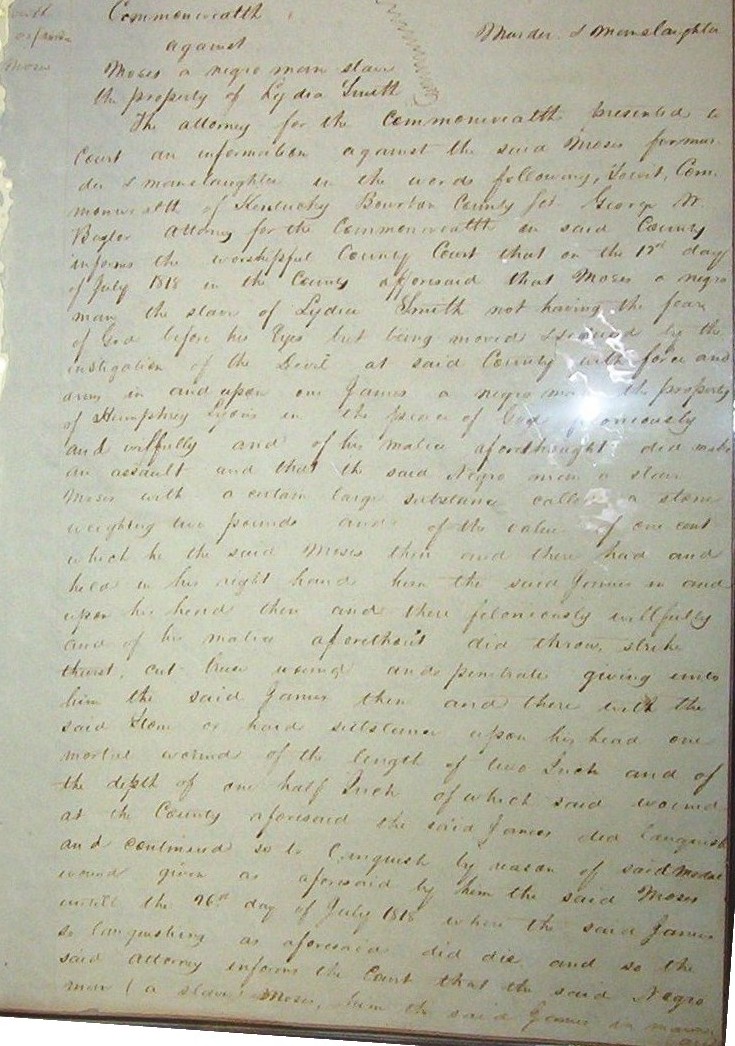 Commonwealth
against
Murder & Manslaughter
Moses a negro man slave
the property of Lydia Smith
The attorney for the Commonwealth presented to
Court an information against the said Moses for mur-
der & manslaughter in the words following, Towit, Com-
monwealth of Kentucky Bourbon County Sct. George W.
Baylor Attorney for the Commonwealth in said County
informs the worshipful County Court that on the 12th day
of July 1818 in the County afforesaid that Moses a negro
man the slave of Lydia Smith not having the fear
of God before his Eyes but being moved & seduced by the
instigation of the Devil at said County with force and
arms in and upon one James a negro man the property
of Humphrey Lyons in the peace of God feloniously
and wilfully and of his malice aforethought did make
an assault and that the said Negro man a slave
Moses with a certain large substance called a stone
weighing two pounds and of the value of one cent
which he the said Moses then and there had and
held in his right hand him the said James in and
upon his head then and there feloniously willfully
and of his malice aforethout did throw, strike
thrust, cut bruse wound and penetrate giving unto
him the said James then and there with the
said stone or hard substance upon his head one
mortal wound of the length of two Inch and of
the depth of one half Inch of which said wound
at the County aforesaid the said James did languish
and continued so to languish by reason of said
wound given as aforesaid by him the said Moses
untill the 26th day of July 1818 when the said James
so languishing as aforesaid did die and so the
said attorney informs the Court that the said Negro
man (a slave) Moses, him the said James in manner